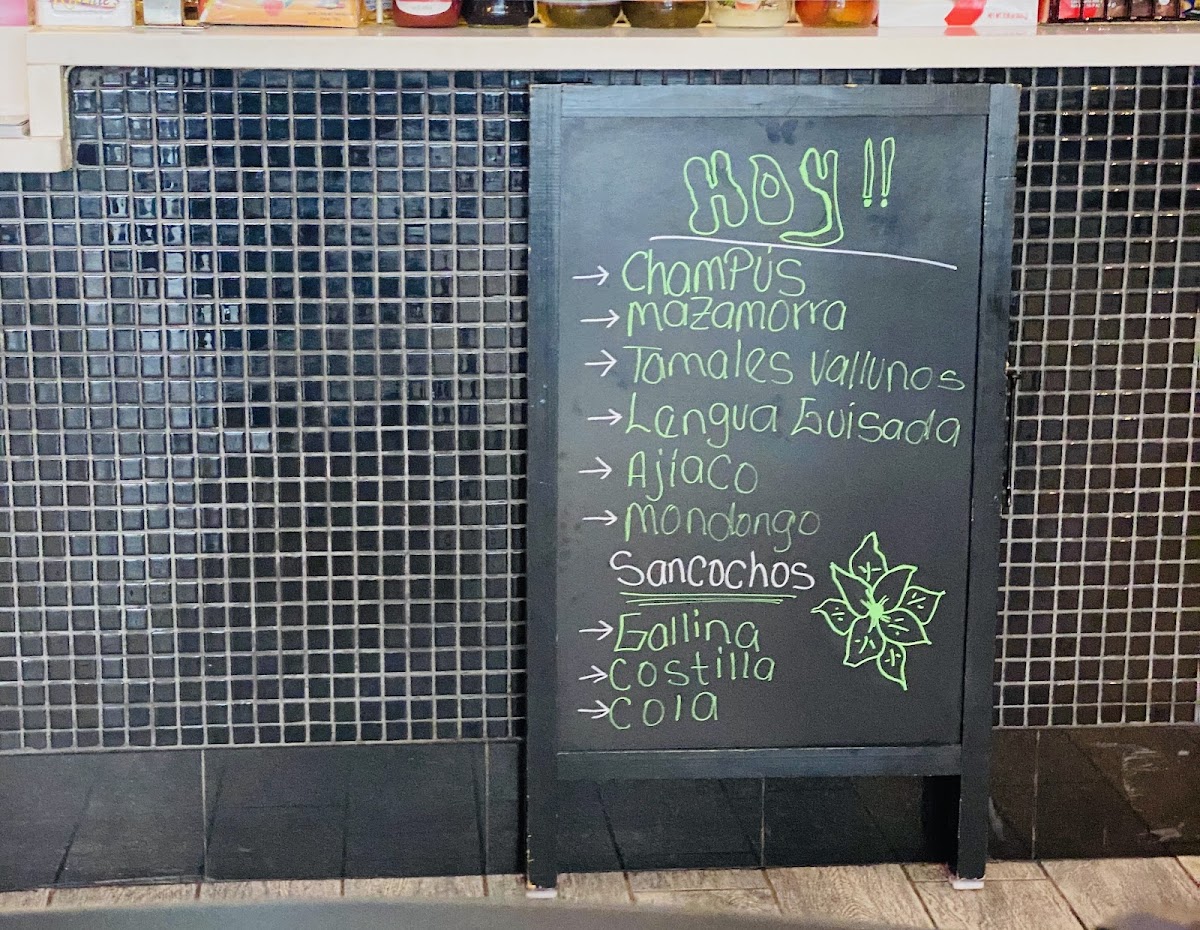 HOY!!
→ ChamPús
→ mazamorra
→ Tamales Vallunos
→ Lengua Guisada
→ AjíaCo
→ mondongo
Sancochos
→ Gallina
→ Costilla
→ Cola